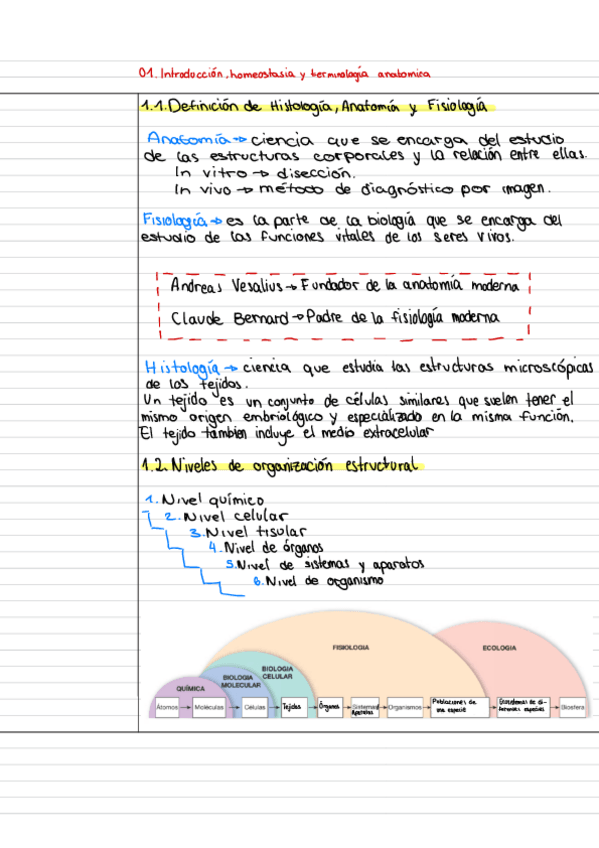 01. Introducción, homeostasia y terminología anatomica
1.1. Definición de Histología, Anatomía y Fisiología
Anatomía → ciencia que se encarga del estudio
de las estructuras corporales y la relación entre ellas.
In vitro → disección.
In vivo → método de diagnóstico por imagen.
Fisiología → es la parte de la biología que se encarga del
estudio de las funciones vitales de los seres vivos.
Andreas Vesalius → Fundador de la anatomía moderna
Claude Bernard → Padre de la fisiología moderna
Histología → ciencia que estudia las estructuras microscópicas
de los tejidos.
Un tejido es un conjunto de células similares que suelen tener el
mismo origen embriológico y especializado en la misma función.
El tejido tambien incluye el medio extracelular
1.2. Niveles de organización estructural
1. Nivel químico
2. Nivel celular
3. Nivel tisular
4. Nivel de órganos
5. Nivel de sistemas y aparatos
6. Nivel de organismo
FISIOLOGIA
ECOLOGIA
BIOLOGIA
CELULAR
BIOLOGIA
MOLECULAR
QUÍMICA
Átomos → Moléculas → Células → Tejidos → Órganos → Sistemas/ Aparatos → Organismos → Poblaciones de una especie → Ecosistemas de diferentes especies → Biosfera